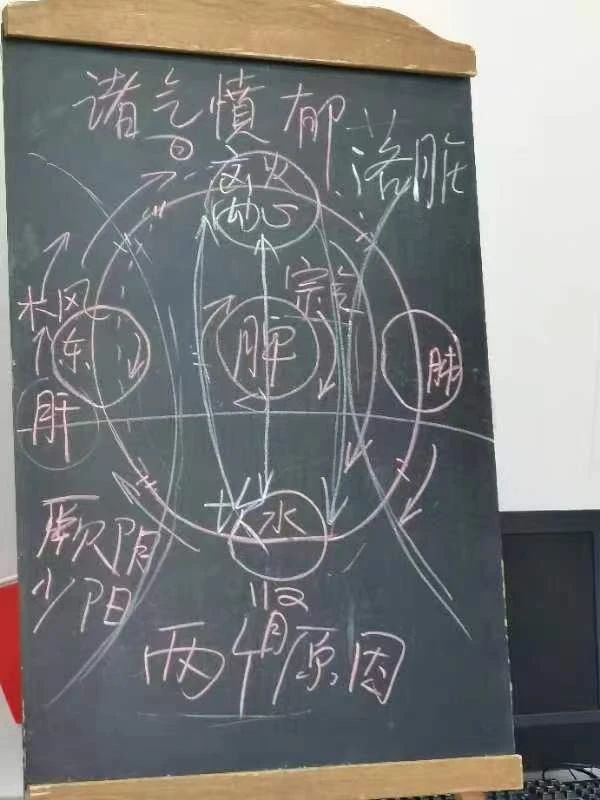 诸气愤郁
落脏
火
心
宗气
木风
东
脾
肺
肝
坎水
肾
厥阴
少阳
两个原因